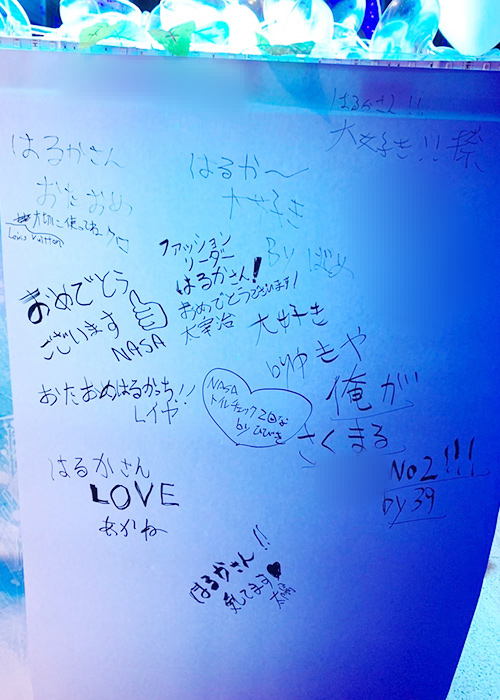 はるかさん!!
大好き!!
はるかさん
おたおめ
大切に使ってね
Louis Vuitton
はるか〜
大好き
By
ファッション
リーダー
はるかさん!
おめでとうございます!
大好き
byゆきや
おめでとう
ございます
NASA
おたおめはるかっち!!
レイヤ
NASA
トイルチェック2回な
by ひびき
俺が
さくまる
No2!!!
by 39
はるかさん
LOVE
あかね
はるかさん!!
見てます♥